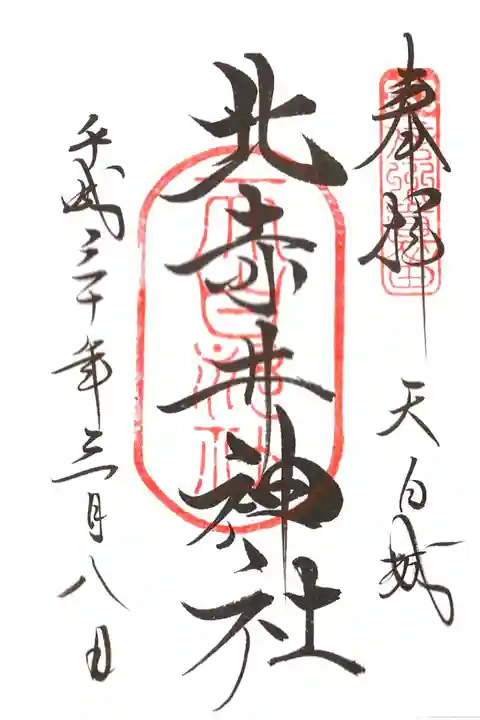 奉拝
天白城
北赤井神社
平成三十年三月八日